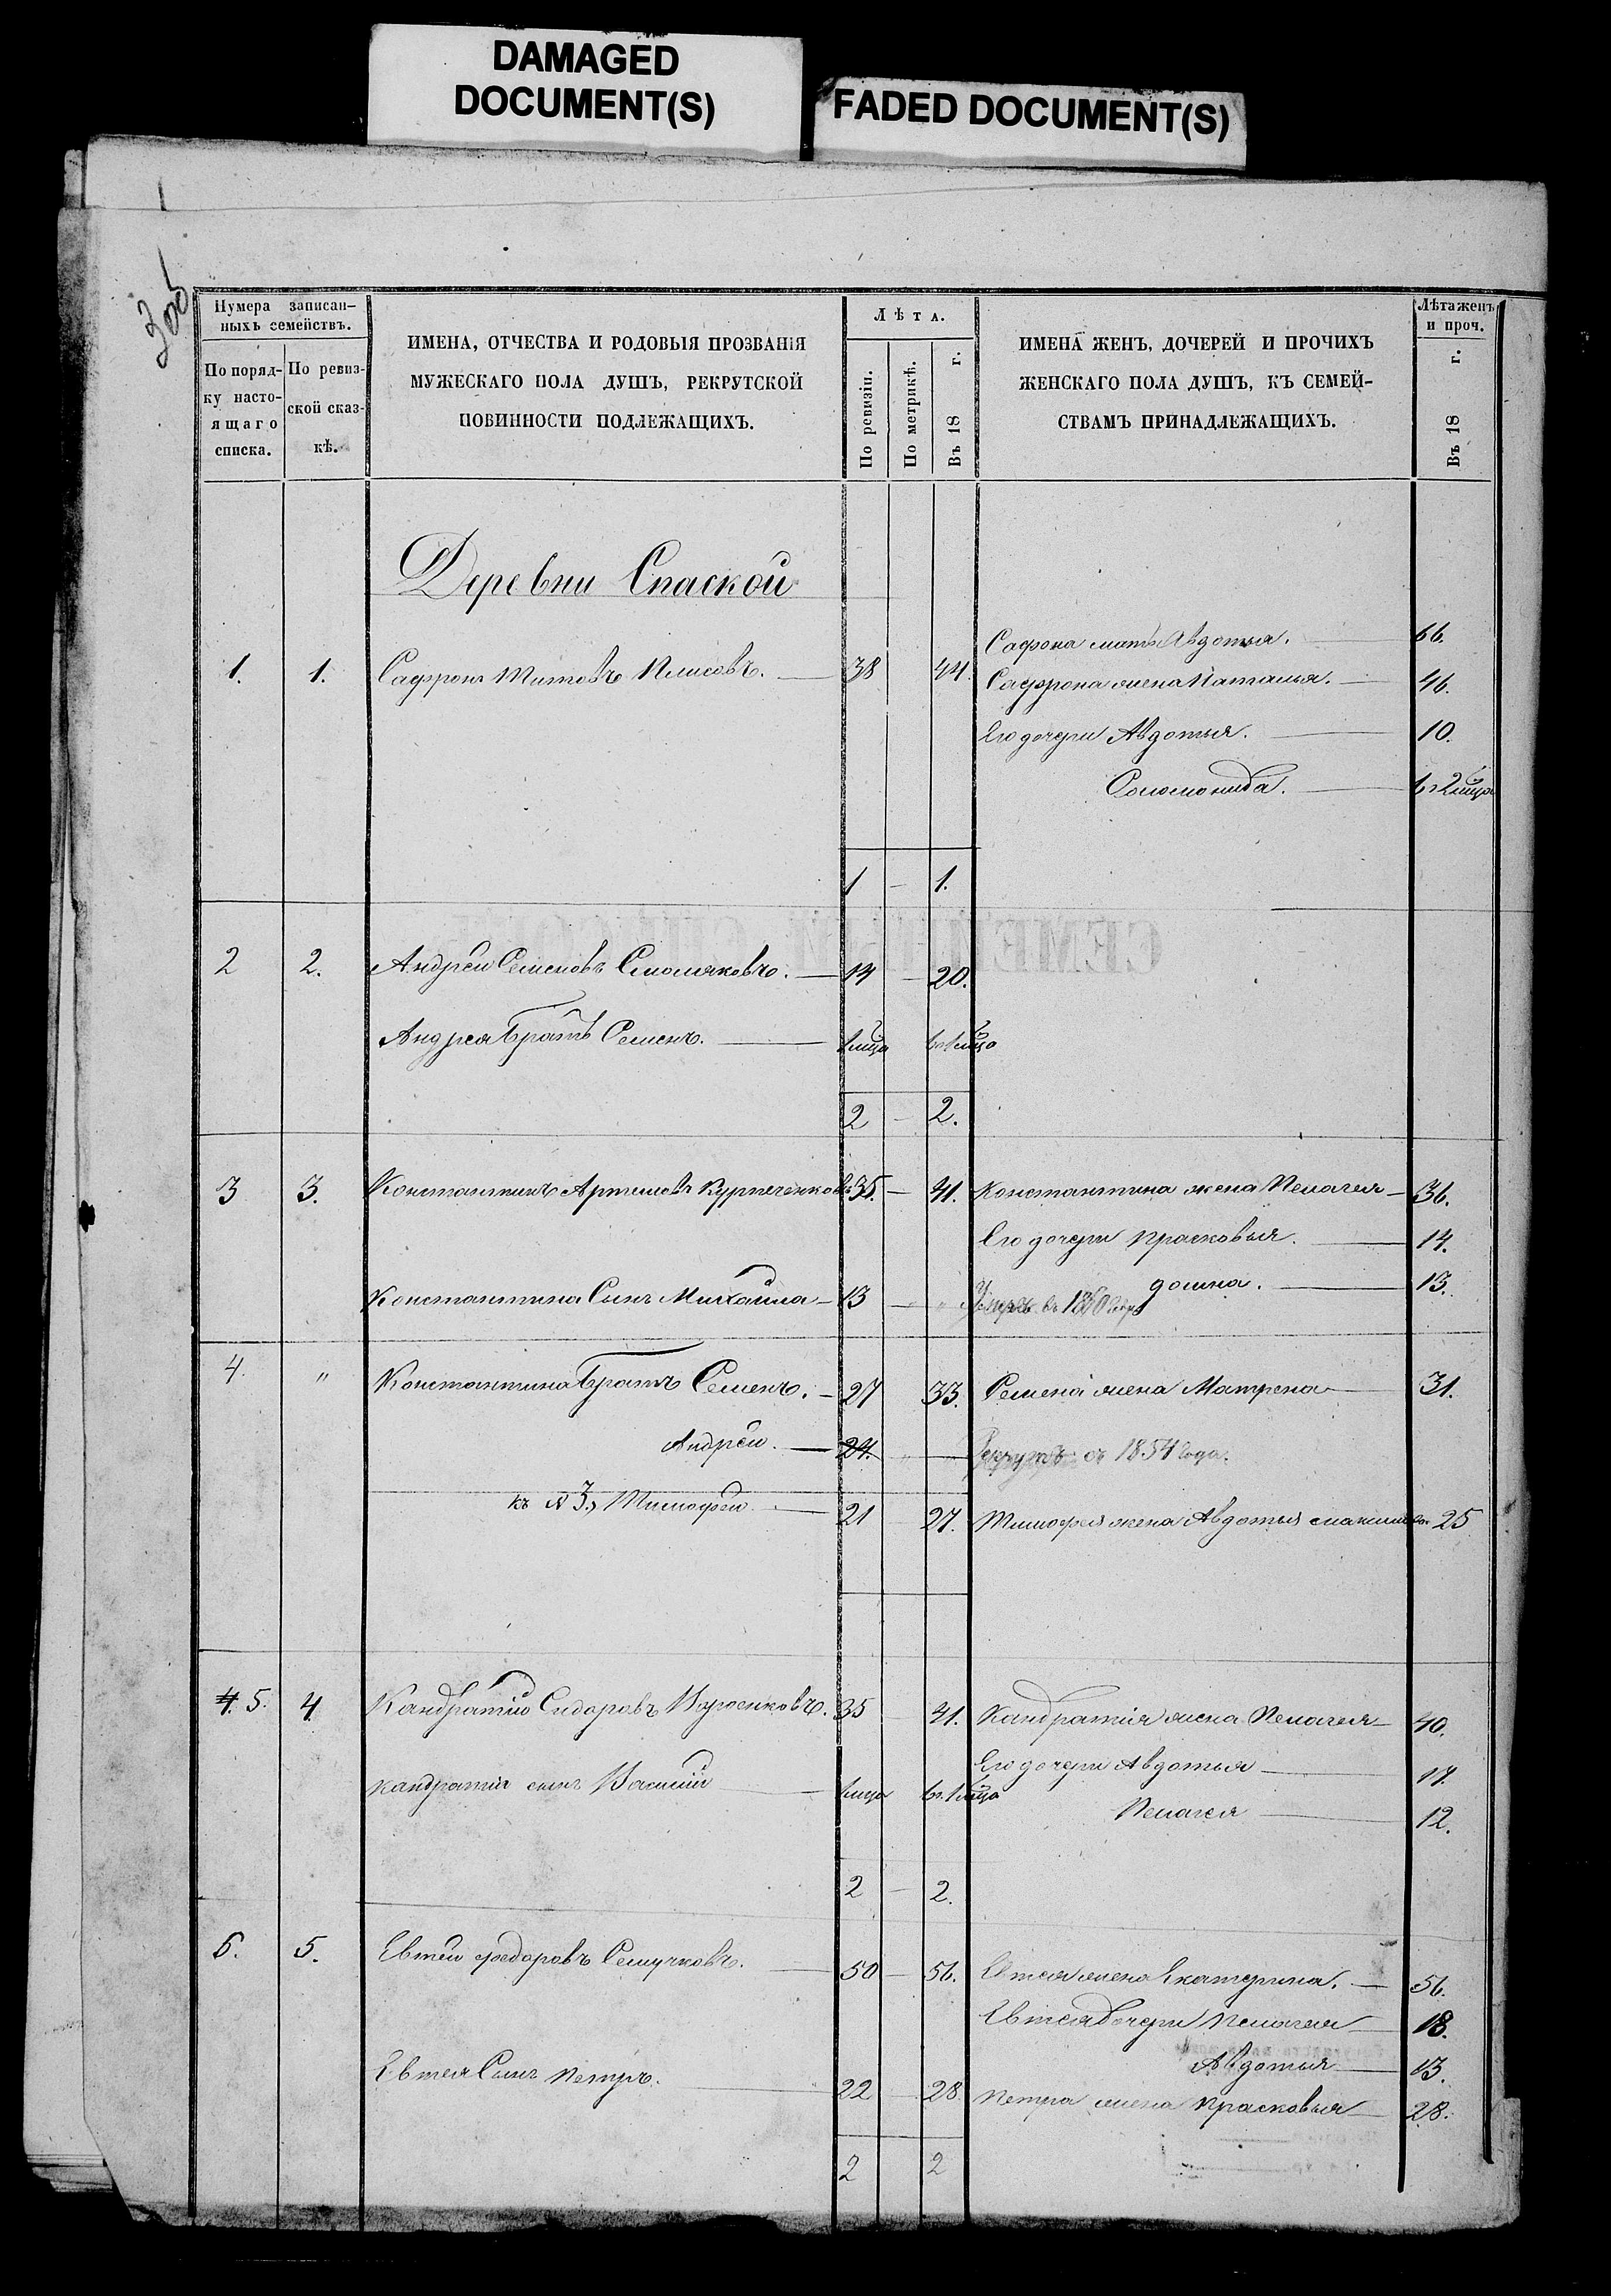 DAMAGED
DOCUMENT(S)
FADED DOCUMENT(S)
Нумера записан-
ныхъ семействъ.
По поряд-
ку насто-
ящаго
списка.
По ревиз-
ской сказ-
кѣ.
ИМЕНА, ОТЧЕСТВА И РОДОВЫЯ ПРОЗВАНІЯ
МУЖЕСКАГО ПОЛА ДУШЪ, РЕКРУТСКОЙ
ПОВИННОСТИ ПОДЛЕЖАЩИХЪ.
Лѣта.
По ревизіи.
По метрикѣ.
Въ 18 г.
ИМЕНА ЖЕНЪ, ДОЧЕРЕЙ И ПРОЧИХЪ
ЖЕНСКАГО ПОЛА ДУШЪ, КЪ СЕМЕЙ-
СТВАМЪ ПРИНАДЛЕЖАЩИХЪ.
Лѣта женъ
и проч.
Въ 18 г.
Деревни Спаской
Сафона мать Авдотья. 66.
1. 1. Сафронъ Титовъ 38 44. Сафрона жена Наталья. 46.
Его дочери Авдотья. 10.
Соломонида.
1 — 1.
2 2. Андрей Семеновъ Смоляковъ. 14 — 20.
Андрея братъ Семенъ.
2 — 2.
3 3. Константинъ Артемовъ 35. — 41. Константина жена Пелагея 36.
Его дочери Прасковья. 14.
Домна. 13.
Константина сынъ Михайла 13 — " въ 1860
4. " Константина братъ Семенъ. 27 33. Семена жена Матрена 31.
Андрей. 24. Рекрутъ съ 1854 года.
къ № 3, Тимофей 21 27. Тимофея жена Авдотья 25
4. 5. 4. Кандратій Сидоровъ 35 41. Кандратія жена Пелагея 40.
Его дочери Авдотья 17.
кандратія сынъ Василій
Пелагея 12.
2 — 2.
6. 5. Евтей Федоровъ 50 — 56. Евтея жена Екатерина. 56.
Евтея дочери Пелагея 18.
Авдотья 13.
Евтея сынъ Петръ. 22 28 Петра жена Прасковья 28.
2 2